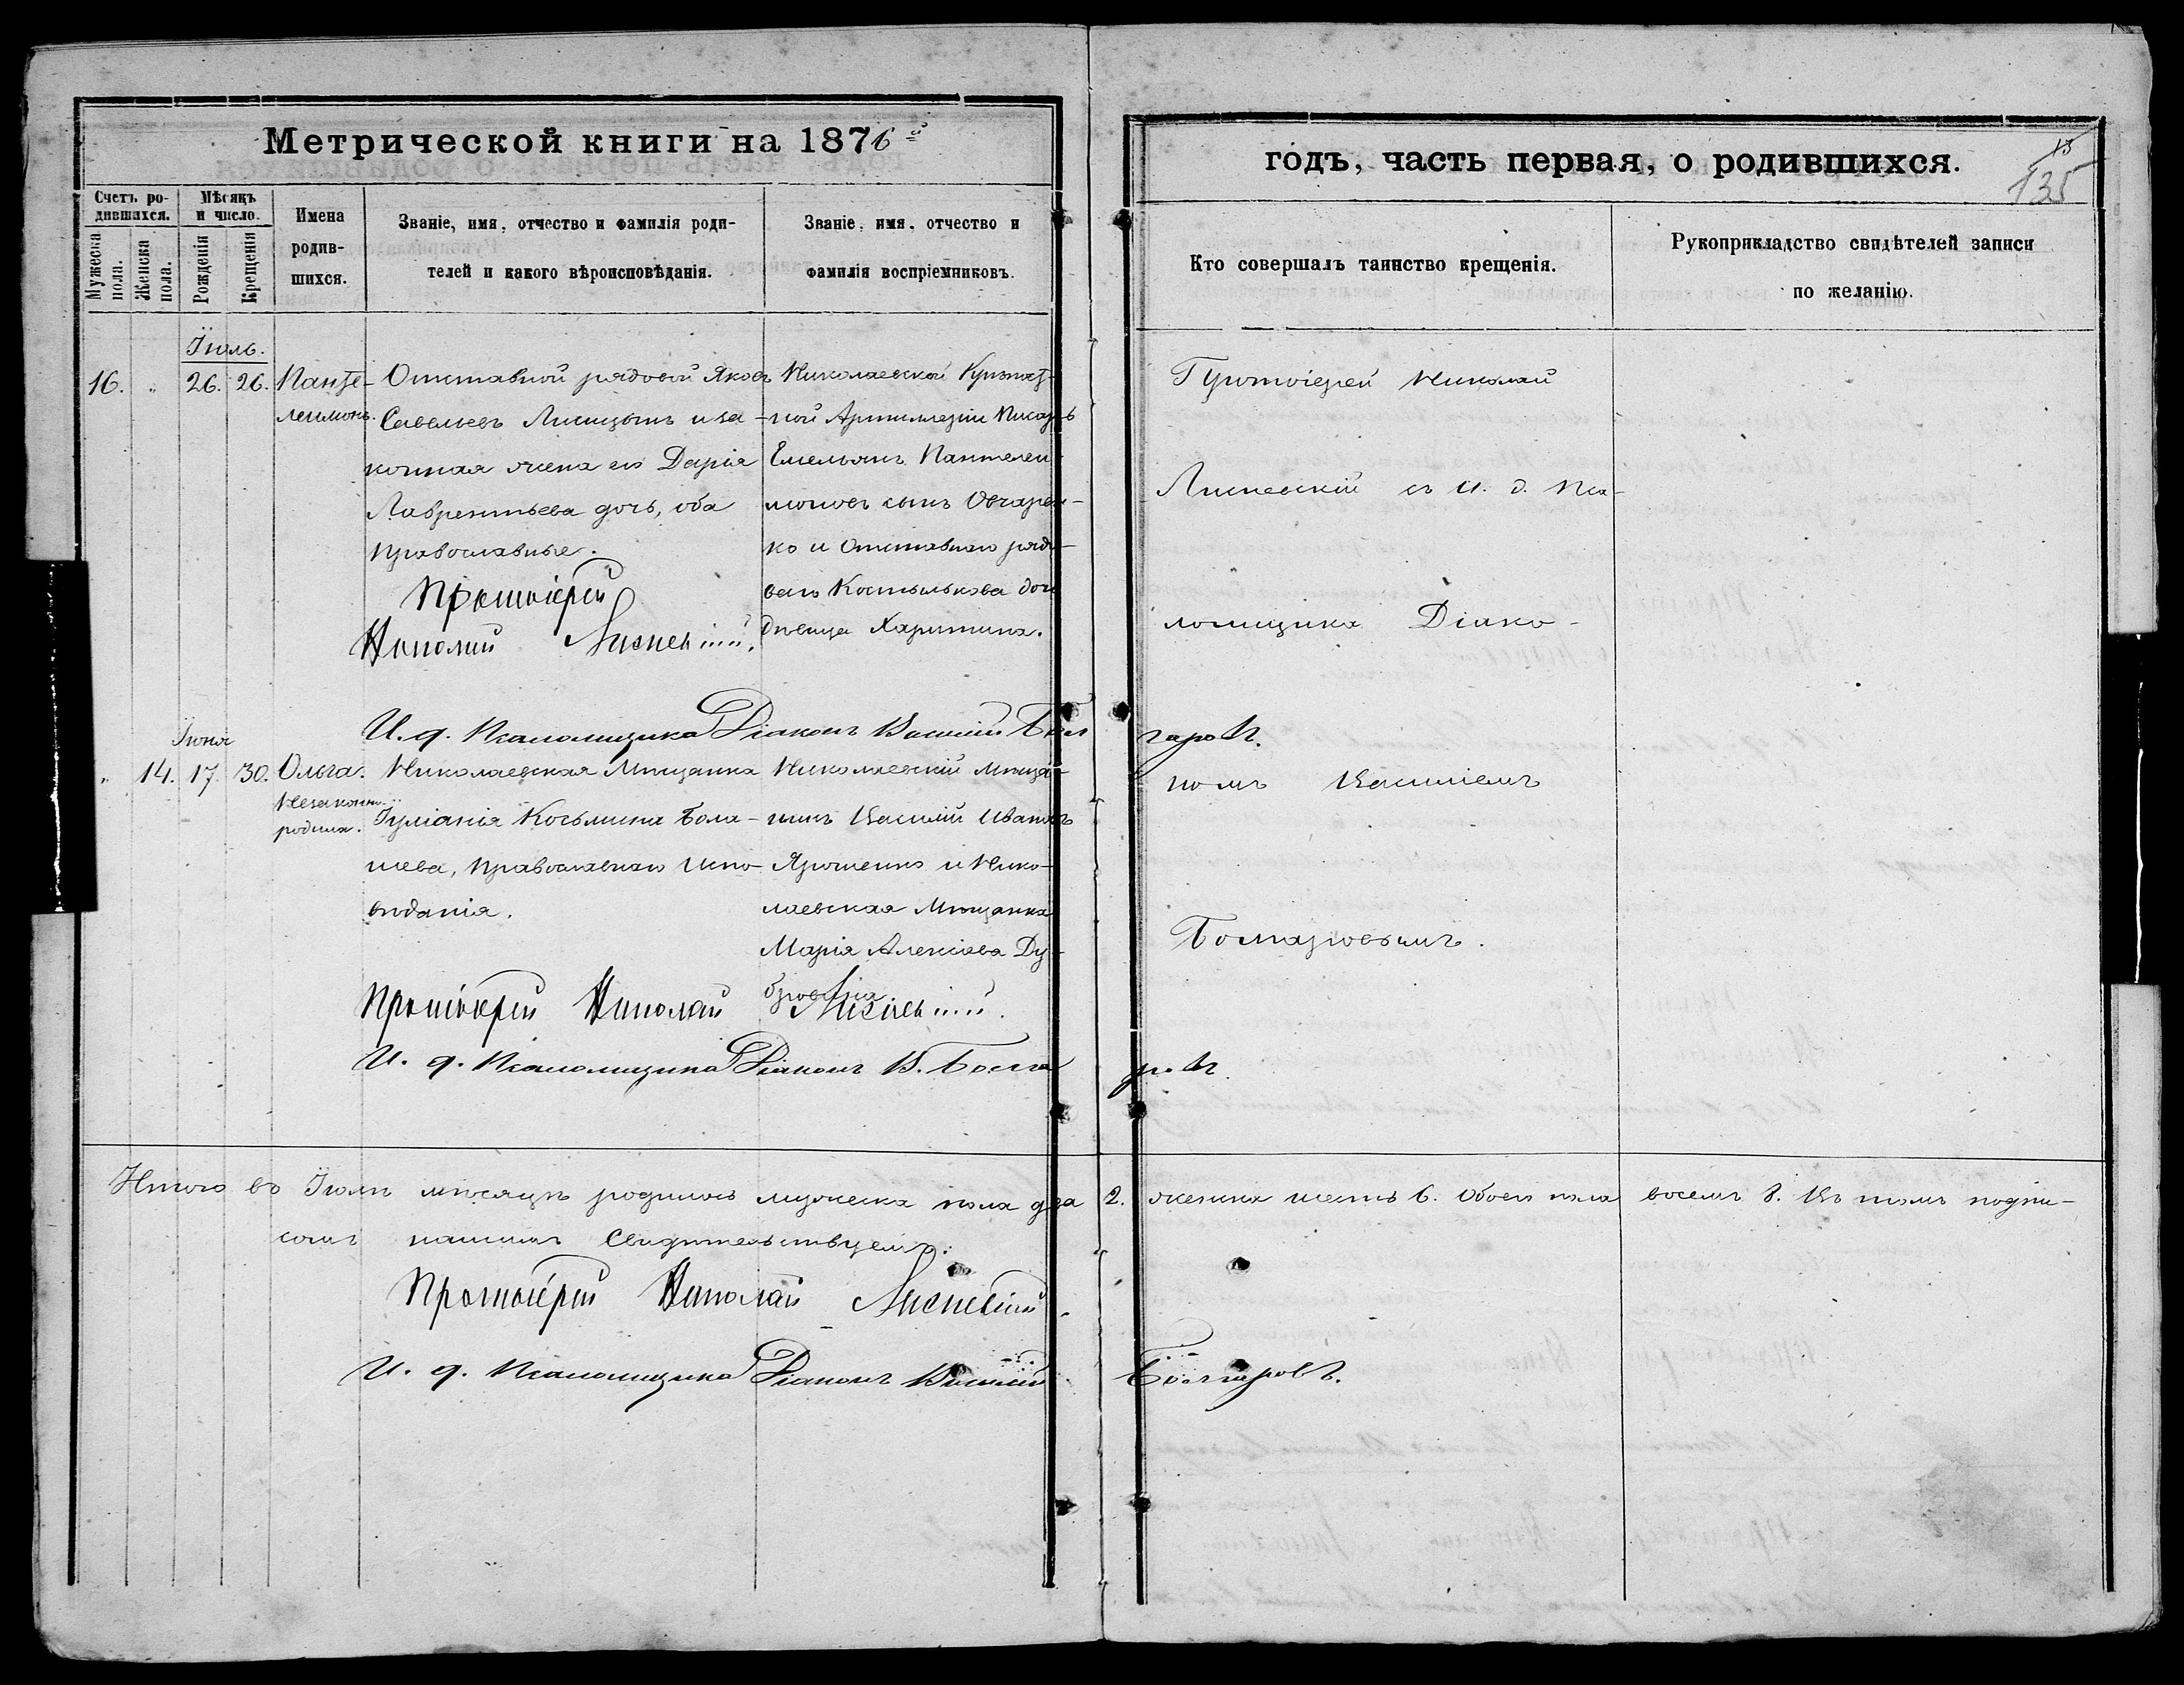 Метрической книги на 1876й
годъ, часть первая, о родившихся.
13
135
Счетъ родившихся.
Мужеска пола.
Женска пола.
Мѣсяцъ и число.
Рожденія
Крещенія
Имена
родив-
шихся.
Званіе, имя, отчество и фамилія роди-
телей и какого вѣроисповѣданія.
Званіе, имя, отчество и
фамилія воспріемниковъ.
Кто совершалъ таинство крещенія.
Рукоприкладство свидѣтелей записи
по желанію.
Іюль.
16. " 26. 26. Панте-
леимонъ.
Отставной рядовой Яковъ
Савельевъ Лисицынъ и за-
конная жена его Дарія
Лаврентьева дочь, оба
православные.
Николаевской Крѣпост-
ной Артиллеріи Писарь
Емельянъ Пантелей-
моновъ сынъ Овчарен-
ко и Отставнаго рядо-
ваго Костылькова дочь
дѣвица Харитина.
Протоіерей
Николай
съ И. д. Пса-
ломщика Діако-
номъ Василіемъ
Болгаровымъ.
Протоіерей
Николай
И. д. Псаломщика Діаконъ Василій Болгаровъ.
Іюня
" 14. 17. 30. Ольга.
Незаконно-
рожден.
Николаевская Мѣщанка
Іуліанія Косьмина Бала-
шева, Православнаго Испо-
вѣданія.
Николаевскій мѣща-
нинъ Василій Ивановъ
Ярошенко и Нико-
лаевская Мѣщанка
Марія Алексіева Ду-
бровина
Протоіерей Николай
И. д. Псаломщика Діаконъ В. Болгаровъ
Итого въ Іюлѣ мѣсяцѣ родилось мужеска пола два 2. женска шесть 6. Обоего пола восемь 8. Въ томъ подпи-
сомъ нашимъ Свидѣтельствуемъ:
Протоіерей Николай
И. д. Псаломщика Діаконъ Василій Болгаровъ.